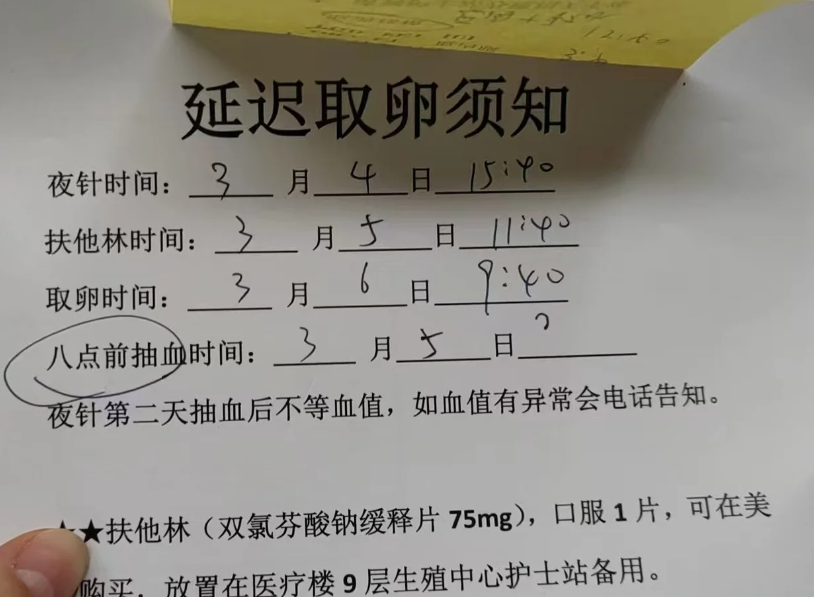 延迟取卵须知
夜针时间：3月4日 15:40
扶他林时间：3月5日 11:40
取卵时间：3月6日 9:40
八点前抽血时间：3月5日
夜针第二天抽血后不等血值，如血值有异常会电话告知。
★★扶他林（双氯芬酸钠缓释片 75mg），口服 1 片，可在美
购买，放置在医疗楼 9 层生殖中心护士站备用。